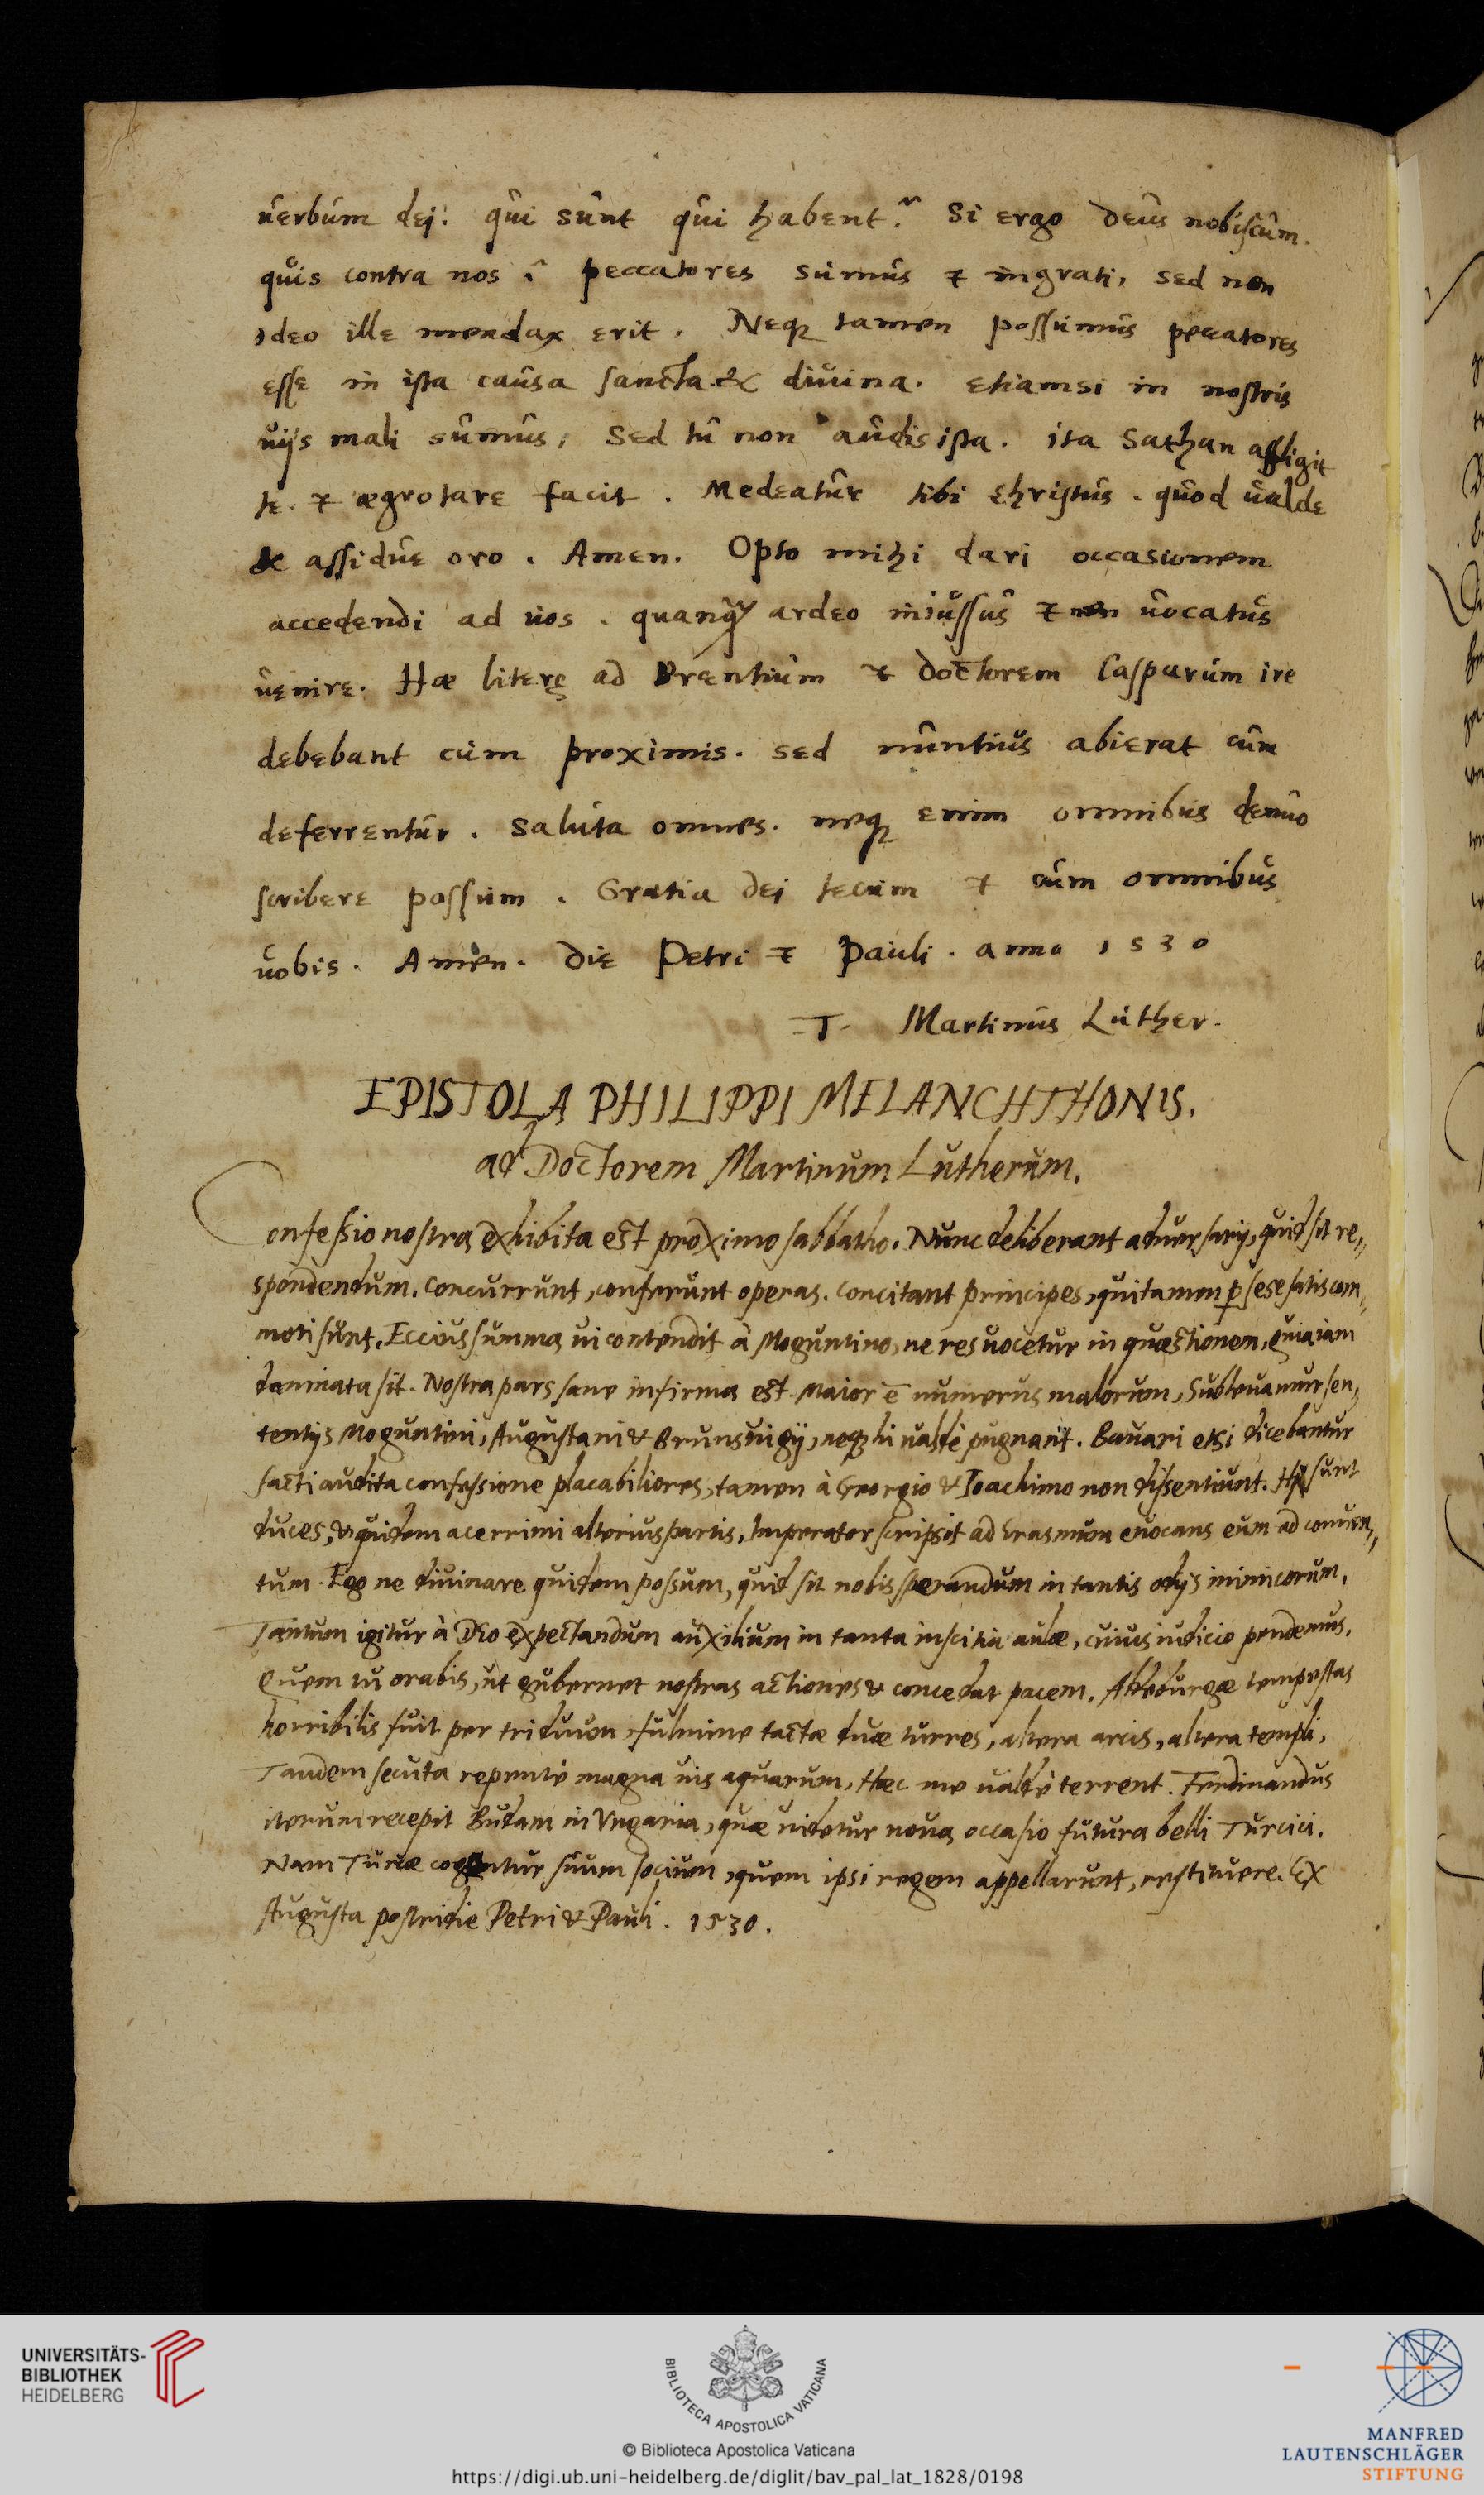 uerbum dej: qui sunt qui habent? Si ergo Deus nobiscum.
quis contra nos? peccatores sumus & ingrati, sed non
ideo ille mendax erit. Neqз tamen possumus peccatores
esse in ista causa sancta & diuina. etiamsi in nostris
uijs mali sumus, Sed tu non audis ista. ita Sathan affligit
te. & ægrotare facit. Medeatur tibi Christus. quod ualde
& assidue oro. Amen. Opto mihi dari occasionem
accedendi ad uos. quanq̃ ardeo iniussus & non uocatus
uenire. Hæ literę ad Brentium & Doctorem Casparum ire
debebant cum proximis. sed nuntius abierat cum
deferrentur. Saluta omnes. neqз enim omnibus denuo
scribere possum. Gratia dej tecum & cum omnibus
uobis. Amen. Die Petri & Pauli. anno 1530
T. Martinus Luther.
EPISTOLA PHILIPPI MELANCHTHONIS.
ad Doctorem Martinum Lutherum.
Confessio nostra exhibita est proximo sabbatho. Nunc deliberant aduersarij, quid sit re„
spondendum. Concurrunt, conferunt operas. concitant principes, qui tamen p sese satis com„
moti sunt. Eccius summa ui contendit à Moguntino, ne res uocetur in quæstionem, quia iam
damnata sit. Nostra pars sane infirma est. Maior ē numerus malorum, Subleuamur sen„
tentijs Moguntini, Augustani & Brunsuigij, neqз hi ualdè pugnant. Bauari etsi dicebantur
facti audita confessione placabiliores, tamen à Georgio & Ioachimo non dissentiunt. Hi sunt
duces, & quidem acerrimi alterius partis. Imperator scripsit ad Erasmum euocans eum ad conuen„
tum. Ego ne diuinare quidem possum, quid sit nobis sperandum in tantis odijs inimicorum.
Tantum igitur à Deo expectandum auxilium in tanta inscitia aulæ, cuius iudicio pendemus.
Quem tu orabis, ut gubernet nostras actiones & concedat pacem. Alteburgæ tempestas
horribilis fuit per triduum, fulmine tactæ duæ turres, altera arcis, altera templi.
Tandem secuta repentè magna uis aquarum, Hæc me ualdè terrent. Ferdinandus
iterum recepit Budam in Vngaria, quæ uidetur noua occasio futura belli Turcici.
Nam Turcæ cogentur suum socium, quem ipsi regem appellarunt, restituere. Ex
Augusta postridie Petri & Pauli. 1530.
UNIVERSITÄTS-
BIBLIOTHEK
HEIDELBERG
BIBLIOTECA APOSTOLICA VATICANA
© Biblioteca Apostolica Vaticana
https://digi.ub.uni-heidelberg.de/diglit/bav_pal_lat_1828/0198
MANFRED
LAUTENSCHLÄGER
STIFTUNG